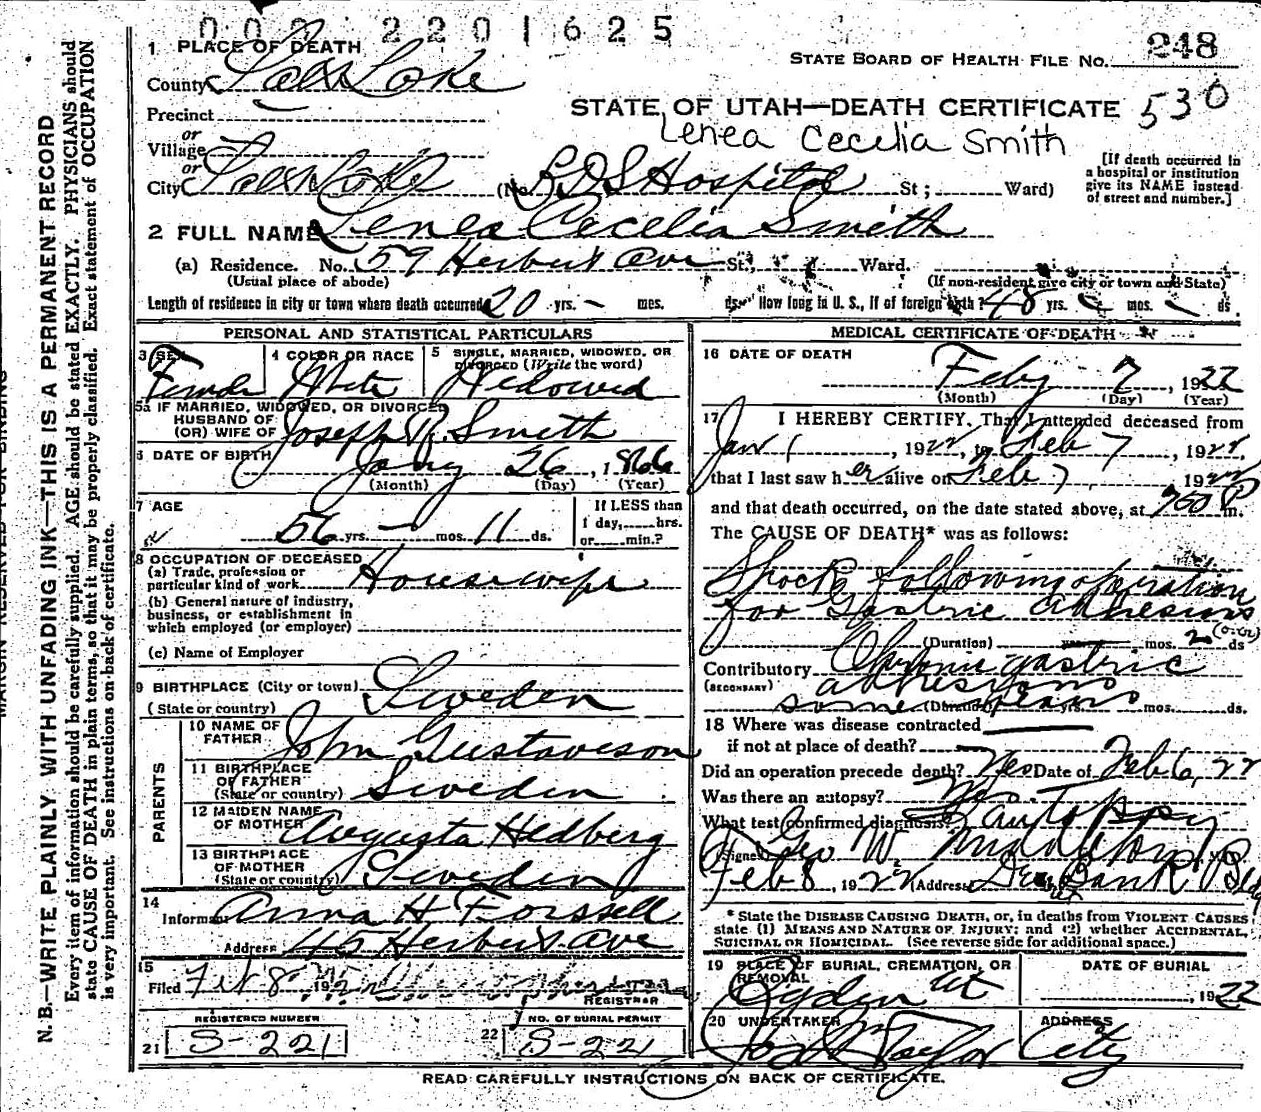 002 2201625
1 PLACE OF DEATH
STATE BOARD OF HEALTH FILE NO. 248
County Salt Lake
STATE OF UTAH—DEATH CERTIFICATE 530
Precinct
Lenea Cecelia Smith
or
Village
or
City Salt Lake (No. L D S Hospital St; Ward)
[If death occurred in a hospital or institution give its NAME instead of street and number.]
2 FULL NAME Lenea Cecelia Smith
(a) Residence. No. 59 Herbert Ave St., Ward.
(Usual place of abode) (If non-resident give city or town and State)
Length of residence in city or town where death occurred 20 yrs. - mos. ds. How long in U. S., if of foreign birth? 48 yrs. - mos. - ds.
PERSONAL AND STATISTICAL PARTICULARS
3 SEX Female
4 COLOR OR RACE White
5 SINGLE, MARRIED, WIDOWED, OR DIVORCED (Write the word) Widowed
5a IF MARRIED, WIDOWED, OR DIVORCED
HUSBAND OF
(OR) WIFE OF Joseph R. Smith
6 DATE OF BIRTH Jany 26, 1866
(Month) (Day) (Year)
7 AGE
56 yrs. - mos. 11 ds.
If LESS than 1 day, hrs. or min.?
8 OCCUPATION OF DECEASED
(a) Trade, profession or particular kind of work Housewife
(b) General nature of industry, business, or establishment in which employed (or employer)
(c) Name of Employer
9 BIRTHPLACE (City or town) Sweden
(State or country)
PARENTS
10 NAME OF FATHER John Gustaveson
11 BIRTHPLACE OF FATHER (State or country) Sweden
12 MAIDEN NAME OF MOTHER Augusta Hedberg
13 BIRTHPLACE OF MOTHER (State or country) Sweden
14
Informant Anna H Forssell
Address 45 Herbert Ave
15
Filed Feb 8, 192
REGISTRAR
REGISTERED NUMBER
21 S-221
NO. OF BURIAL PERMIT
22 S-221
MEDICAL CERTIFICATE OF DEATH
16 DATE OF DEATH
Feby 7, 1922
(Month) (Day) (Year)
17 I HEREBY CERTIFY, That I attended deceased from
Jan 1, 1922, to Feb 7, 1922,
that I last saw her alive on Feb 7, 1922
and that death occurred, on the date stated above, at 750 P m.
The CAUSE OF DEATH* was as follows:
Shock following operation
for Gastric adhesions
(over)
(Duration) yrs. mos. 2 ds
Contributory Chronic gastric
(SECONDARY) adhesions
some years (Duration) mos. ds.
18 Where was disease contracted
if not at place of death?
Did an operation precede death? Yes Date of Feb 6, 22
Was there an autopsy? Yes.
What test confirmed diagnosis? autopsy
(Signed) Geo W. Middleton, M.D.
Feb 8, 1922 (Address) Des Bank Bldg
* State the DISEASE CAUSING DEATH, or, in deaths from VIOLENT CAUSES
state (1) MEANS AND NATURE OF INJURY; and (2) whether ACCIDENTAL,
SUICIDAL OR HOMICIDAL. (See reverse side for additional space.)
19 PLACE OF BURIAL, CREMATION, OR REMOVAL
Ogden Ut
DATE OF BURIAL
, 1922
20 UNDERTAKER
Jos Wm Taylor
ADDRESS
City
READ CAREFULLY INSTRUCTIONS ON BACK OF CERTIFICATE.
MARGIN RESERVED FOR BINDING
N. B.—WRITE PLAINLY WITH UNFADING INK—THIS IS A PERMANENT RECORD
Every item of information should be carefully supplied. AGE should be stated EXACTLY. PHYSICIANS should
state CAUSE OF DEATH in plain terms, so that it may be properly classified. Exact statement of OCCUPATION
is very important. See instructions on back of certificate.